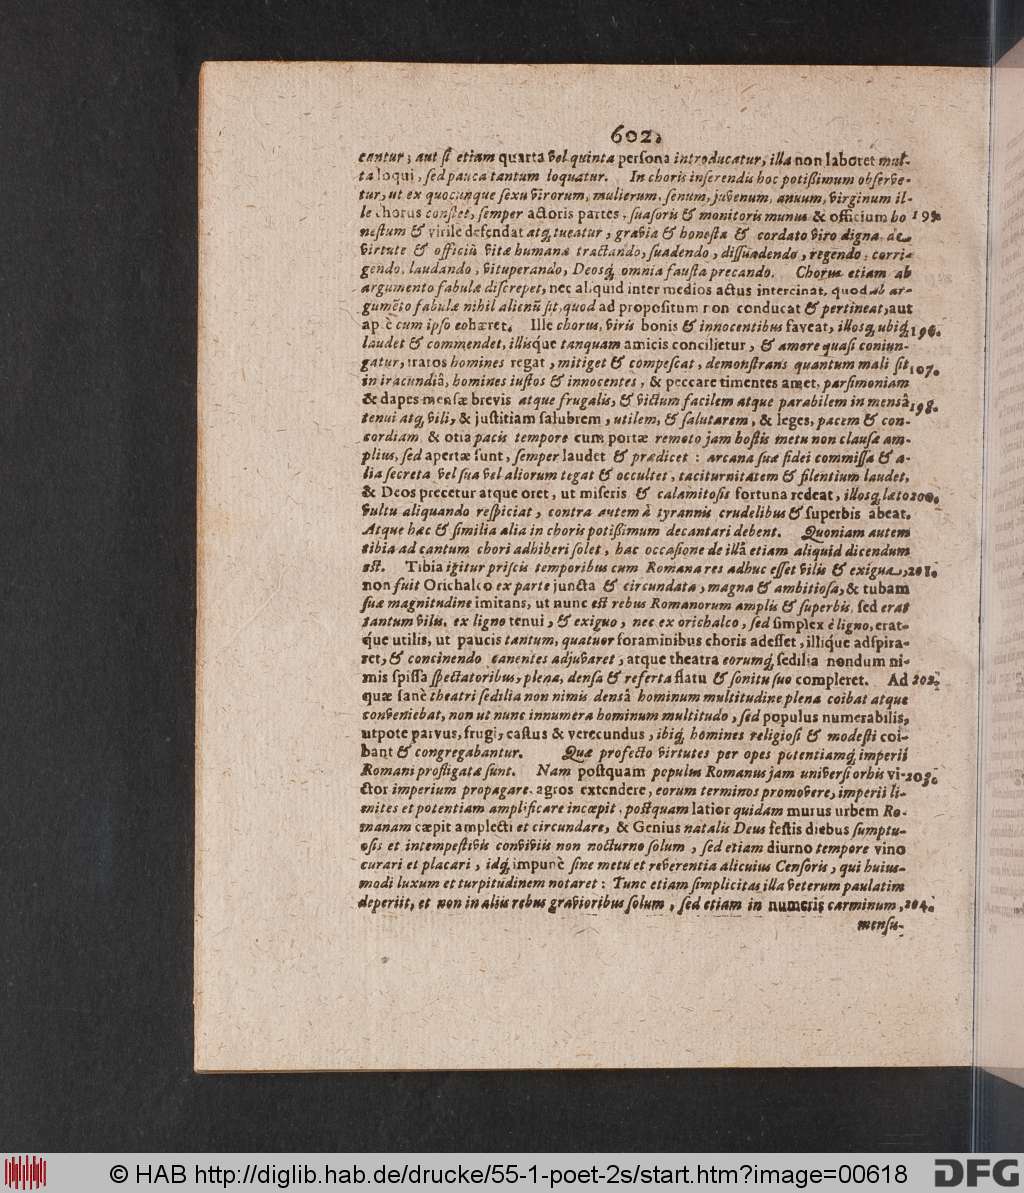 602.
cantur; aut ſi etiam quarta vel quinta perſona introducatur, illa non laboret mul-
ta loqui, ſed pauca tantum loquatur. In choris inſerendis hoc potißimum obſerve-
tur, ut ex quocunque ſexu virorum, mulierum, ſenum, juvenum, anuum, virginum il-
le chorus conſtet, ſemper actoris partes, ſuaſoris & monitoris munus & officium ho 195.
neſtum & virile defendat atq́ tueatur, gravia & honeſta & cordato viro digna, de
virtute & officiû vitæ humanæ tractando, ſuadendo, diſſuadendo, regendo, corri-
gendo, laudando, vituperando, Deosq́ omnia fauſta precando. Chorus etiam ab
argumento fabulæ diſcrepet, nec aliquid inter medios actus intercinat, quod ab ar-
gumẽto fabulæ nihil alienũ ſit, quod ad propoſitum non conducat & pertineat, aut
aptè cum ipſo cohæret. Ille chorus, viris bonis & innocentibus faveat, illosq́ ubiq́ 196.
laudet & commendet, illisque tanquam amicis concilietur, & amore quaſi coniun-
gatur, iratos homines regat, mitiget & compeſcat, demonſtrans quantum mali ſit 197.
in iracundiâ, homines iuſtos & innocentes, & peccare timentes amet, parſimoniam
& dapes menſæ brevis atque frugalis, & victum facilem atque parabilem in mensâ 198.
tenui atq́ vili, & juſtitiam ſalubrem, utilem, & ſalutarem, & leges, pacem & con-
cordiam & otia pacis tempore cum portæ remoto jam hoſtis metu non clauſæ am-
plius, ſed apertæ ſunt, ſemper laudet & prædicet: arcana ſuæ fidei commiſſa & a-
lia ſecreta vel ſua vel aliorum tegat & occultet, taciturnitatem & ſilentium laudet,
& Deos precetur atque oret, ut miſeris & calamitoſis fortuna redeat, illosq́ læto 200.
vultu aliquando reſpiciat, contra autem à tyrannis crudelibus & ſuperbis abeat.
Atque hæc & ſimilia alia in choris potißimum decantari debent. Quoniam autem
tibia ad cantum chori adhiberi ſolet, hac occaſione de illâ etiam aliquid dicendum
eſt. Tibia igitur priſcis temporibus cum Romana res adhuc eſſet vilis & exigua, 201.
non fuit Orichalco ex parte juncta & circundata, magna & ambitioſa, & tubam
ſuæ magnitudine imitans, ut nunc eſt rebus Romanorum amplis & ſuperbis, ſed erat
tantum vilis, ex ligno tenui, & exiguo, nec ex orichalco, ſed ſimplex è ligno, erat-
que utilis, ut paucis tantum, quatuor foraminibus choris adeſſet, illique adſpira-
ret, & concinendo canentes adjuvaret, atque theatra eorumq́ ſedilia nondum ni-
mis ſpiſſa ſpectatoribus, plena, denſa & referta flatu & ſonitu ſuo compleret. Ad 202.
quæ ſanè theatri ſedilia non nimis densâ hominum multitudine plena coibat atque
conveniebat, non ut nunc innumera hominum multitudo, ſed populus numerabilis,
utpote parvus, frugi, caſtus & verecundus, ibiq́ homines religioſi & modeſti coi-
bant & congregabantur. Quæ profecto virtutes per opes potentiamq́ imperii
Romani profligatæ ſunt. Nam poſtquam populus Romanus jam univerſi orbis vi- 203.
ctor imperium propagare, agros extendere, eorum terminos promovere, imperii li-
mites et potentiam amplificare incœpit, poſtquam latior quidam murus urbem Ro-
manam cœpit amplecti et circundare, & Genius natalis Deus feſtis diebus ſumptu-
oſis et intempeſtivis conviviis non nocturno ſolum, ſed etiam diurno tempore vino
curari et placari, idq́ impunè ſine metu et reverentia alicuius Cenſoris, qui huius-
modi luxum et turpitudinem notaret: Tunc etiam ſimplicitas illa veterum paulatim
deperiit, et non in aliis rebus gravioribus ſolum, ſed etiam in numeris carminum, 204.
menſu-
© HAB http://diglib.hab.de/drucke/55-1-poet-2s/start.htm?image=00618
DFG